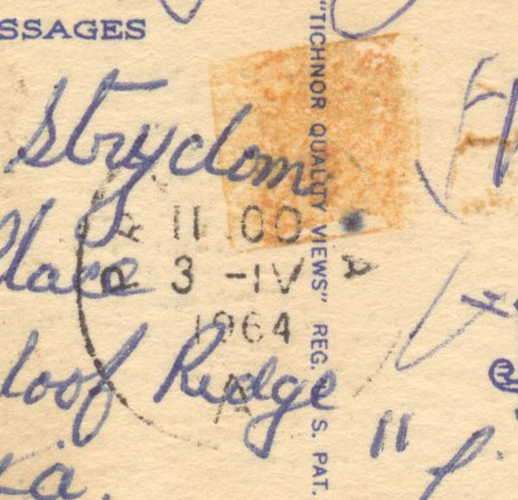 SSAGES
Strydom
11 00
Place
3 -IV
1964
Kloof Ridge
A
"TICHNOR QUALITY VIEWS" REG. U. S. PAT.